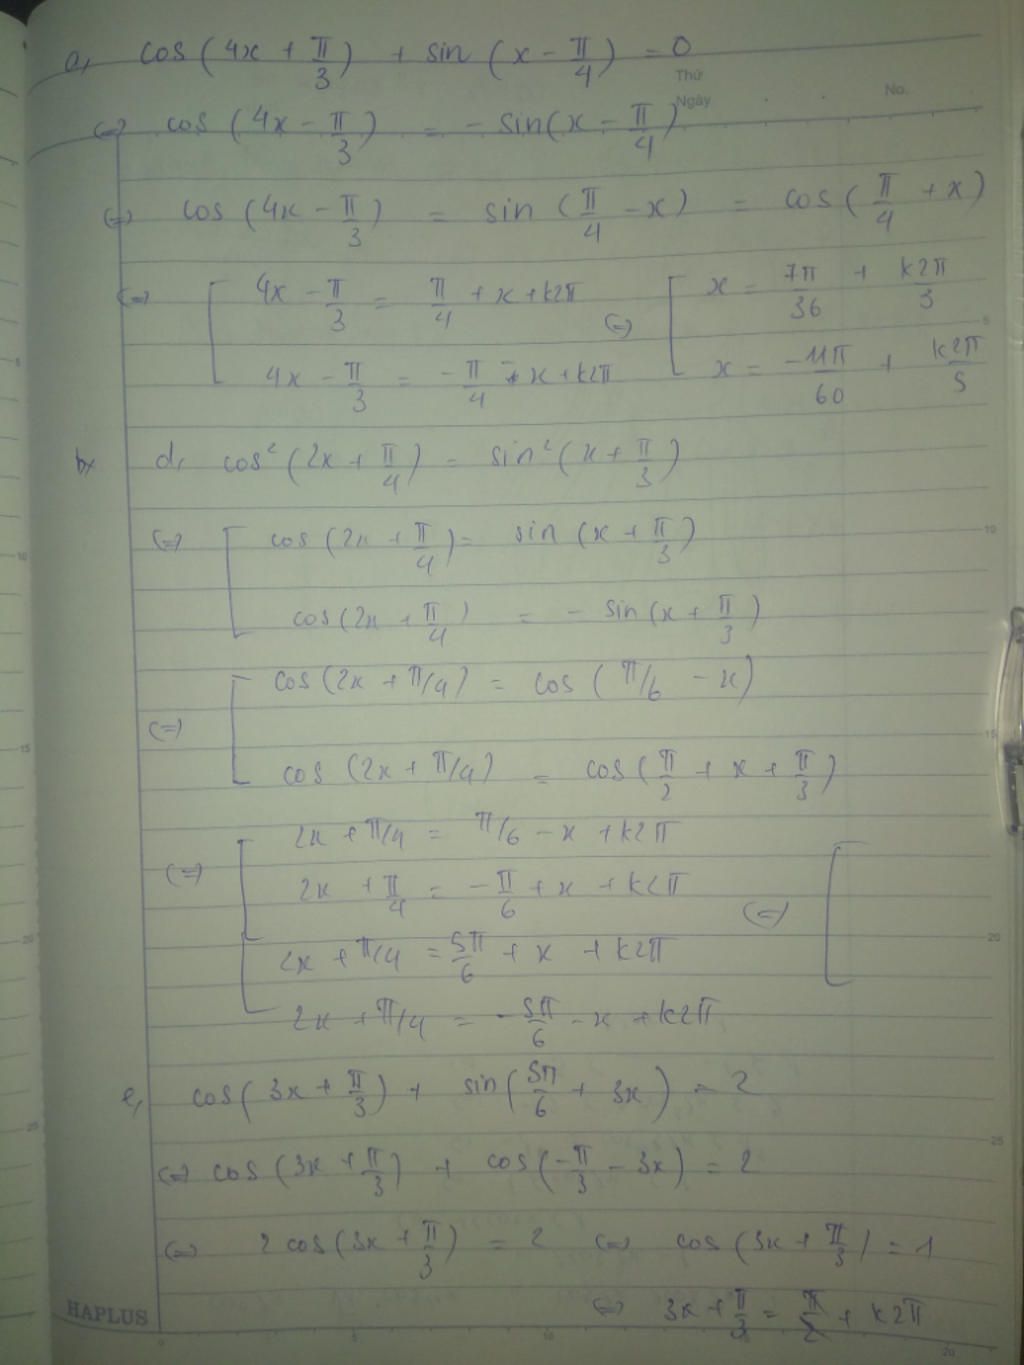 a, cos(4x + π/3) + sin(x - π/4) = 0
Thứ
Ngày
No.
(=) cos(4x - π/3) = - sin(x - π/4)
(=) cos(4x - π/3) = sin(π/4 - x) = cos(π/4 + x)
(=) [ 4x - π/3 = π/4 + x + k2π (=) [ x = 7π/36 + k2π/3
4x - π/3 = - π/4 - x + k2π x = -11π/60 + k2π/5
b, d, cos²(2x + π/4) = sin²(x + π/3)
(=) [ cos(2x + π/4) = sin(x + π/3)
cos(2x + π/4) = - sin(x + π/3)
(=) [ cos(2x + π/4) = cos(π/6 - x)
cos(2x + π/4) = cos(π/2 + x + π/3)
(=) [ 2x + π/4 = π/6 - x + k2π
2x + π/4 = - π/6 + x + k2π (=) [
2x + π/4 = 5π/6 + x + k2π
2x + π/4 = - 5π/6 - x + k2π
e, cos(3x + π/3) + sin(5π/6 + 3x) = 2
(=) cos(3x + π/3) + cos(-π/3 - 3x) = 2
(=) 2 cos(3x + π/3) = 2 (=) cos(3x + π/3) = 1
HAPLUS (=) 3x + π/3 = π/2 + k2π